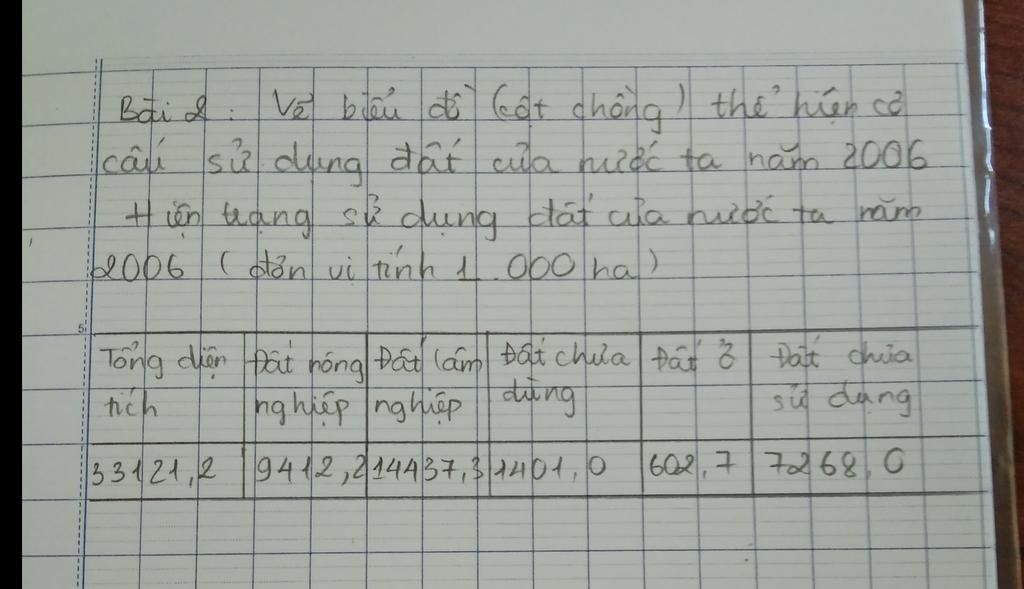 Bài 2: Vẽ biểu đồ (cột chồng) thể hiện cơ
cấu sử dụng đất của nước ta năm 2006
Hiện trạng sử dụng đất của nước ta năm
2006 (đơn vị tính 1.000 ha)
Tổng diện tích Đất nông nghiệp Đất lâm nghiệp Đất chưa dùng Đất ở Đất chưa sử dụng
33121,2 9412,2 14437,3 1401,0 602,7 7268,0